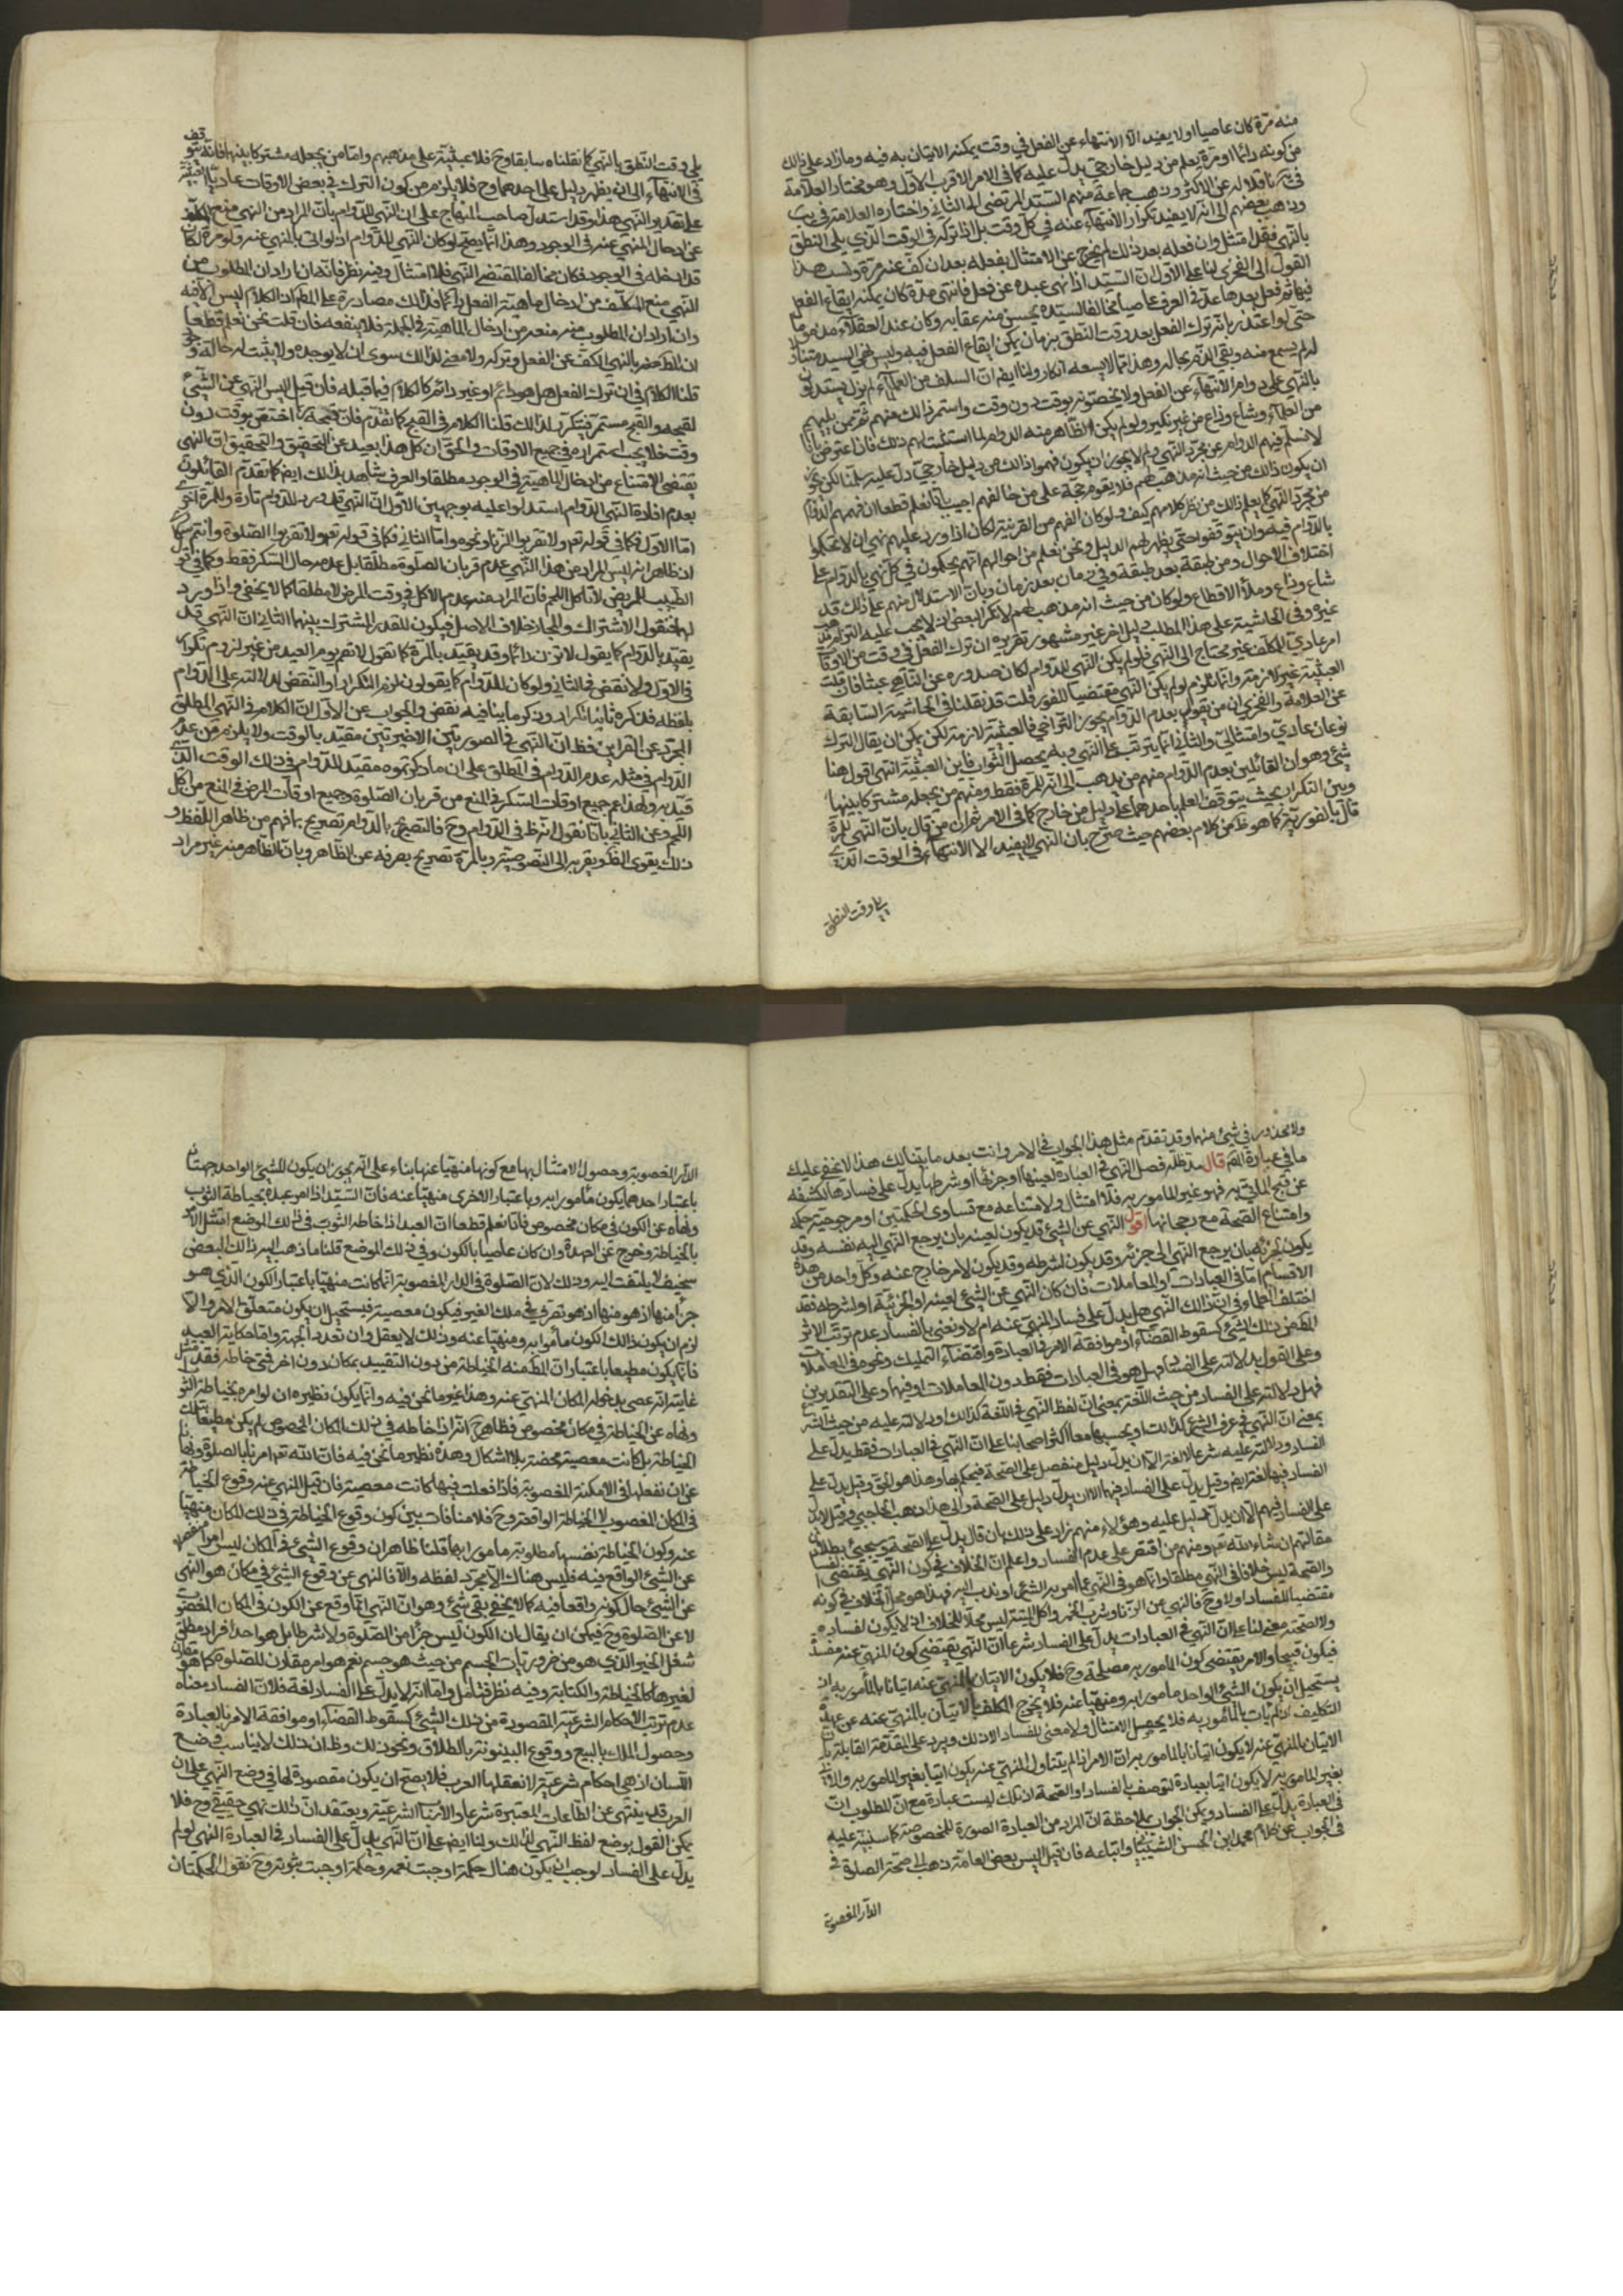 منه مرّة كان عاصيا اولا يفيد الّا الانتهاء عن الفعل في وقت يمكنه الاتيان به فيه وما زاد على ذالك
من كونه دائما او مرة يعلم من دليل خارجيّ يدلّ عليه كما فى الامر الاقرب الاوّل وهو مختار العلامة
عن الاكثر وذهب جماعة منهم السيّد المرتضى الى الثاني واختاره العلامة في يب
وذهب بعضهم الى انّه لا يفيد تكرار الانتهاء عنه في كلّ وقت بل اذا تركه في الوقت الذي يلى النطق
بالنّهي فقد امتثل وان فعله بعد ذلك لم يخرج عن الامتثال بفعله بعد ان كفّ عنه مرة ونسب هذا
القول الى الفخرى لنا على الاوّل انّ السيّد اذا نهى عبده عن فعل فانتهى مدّة كان يمكنه ايقاع الفعل
فيها ثم فعل بعدها عدّ في العرف عاصيا مخالفا لسيّده يحسن منه عقابه وكان عند العقلاء مذموما
حتى لو اعتذر بانّه ترك الفعل بعد وقت النطق بزمان يمكن ايقاع الفعل فيه وليس نهي السيد متناولا
له لم يسمع منه وبقى الذّم بحاله وهذا مما لا يسعه انكار ولنا ايضا انّ السلف من العلماء لم يزل يستدلون
بالنّهي على دوام الانتهاء عن الفعل ولا يخصّونه بوقت دون وقت واستمر ذالك منهم ثم ممن يليهم
من العلماء وشاع وذاع من غير نكير ولو لم يكن الظاهر منه الدوام لما استكتما لهم ذلك فان اعترض بانّا
لا نسلّم فهم الدوام عن مجرّد النّهي ولم لا يجوز ان يكون فهموا ذالك من دليل خارجيّ دلّ عليه سلّمنا لكن يجوز
ان يكون ذالك من حيث انه مذهب لهم فلا يقوم حجّة على من خالفهم اجيب بانّا نعلم قطعا ان فهمهم الدوام
من مجرّد النّهي كما يعلم ذالك من نظر كلامهم كيف ولو كان الفهم من القرينة لكان اذا ورد عليهم نهي ان لا يحكموا
بالدّوام فيه وان يتوقفوا حتى يظهر لهم الدليل ونحن نعلم من احوالهم انّهم يحكمون في كلّ نهي بالدوام على
اختلاف الاحوال ومن طبقة بعد طبقة وفي زمان بعد زمان وبانّ الاستدلال منهم على ذلك قد
شاع وذاع وملأ الاقطاع ولو كان من حيث انه مذهب لهم لانكر البعض انه لا يجب عليه التزام مذهب
غيره وفى الحاشية على هذا المطلب دليل اخر غير مشهور تقريره ان ترك الفعل في وقت من الاوقات
امر عاديّ للمكلف غير محتاج الى النّهي فلو لم يكن النّهي للدّوام لكان صدوره عن النّاهي عبثا فان قلت
العبثيّة غير لازمة وانّما يلزم لو لم يكن النّهي مقتضيا للفور قلت قد نقلنا في الحاشية السابقة
عن العلامة والفخري ان من يقول بعدم الدّوام يجوز التراخي فالعبثيّة لازمة لكن يمكن ان يقال الترك
نوعان عاديّ وامتثاليّ والثاني انّما يترتب على النّهي وبه يحصل الثّواب فاين العبثيّة انتهى اقول هنا
شيء وهو ان القائلين بعدم الدّوام منهم من يذهب الى انّه للمرّة فقط ومنهم من يجعله مشتركا بينها
وبين التكرار بحيث يتوقف العلم باحدهما على دليل من خارج كما فى الامر ثم ان من قال بانّ النّهي للمرّة
قال بالفوريّة كما هو ظ من كلام بعضهم حيث صرّح بان النّهي لا يفيد الا الانتهاء في الوقت الذي
يلى وقت النطق
يلى وقت النّطق بالنّهي كما نقلناه سابقا وح فلا عبثيّة على مذهبهم وامّا من يجعله مشتركا بينهما فانّه يتوقف
فى الانتهاء الى ان يظهر دليل على احدهما وح فلا يلزم من كون الترك في بعض الاوقات عاديّا العبثيّة
على تقدير النّهي هذا وقد استدلّ صاحب المنهاج على ان النّهي للدّوام بانّ المراد من النهي منع المكلّف
عن ادخال المنهي عنه فى الوجود وهذا انّما يصحّ لو كان النّهي للدّوام اذ لو اتى بالمنهي عنه ولو مرة لكان
قد ادخله في الوجود فكان مخالفا لمقتضى النّهي فلا امتثال وفيه نظر فانّه ان اراد ان المطلوب من
النّهي منع المكلّف من ادخال ماهيّة الفعل دائما فذالك مصادرة على المط ان الكلام ليس الا فيه
وان اراد ان المطلوب منه منعه من ادخال الماهية في الجملة فلا ينفعه فان قلت نحن نعلم قطعا
ان المط بالنهي الكفّ عن الفعل وتركه ولا معنى لذالك سوى ان لا يوجده ولا يثبت له حالة وجود
قلنا الكلام في ان ترك الفعل هل هو دائم او غير دائم كالكلام فيما قبله فان قيل اليس النّهي عن الشيء
لقبحه والقبح مستمر فيتكرر لذالك قلنا الكلام فى القبح كما تقدّم فانّ قبحه ربّما اختصّ بوقت دون
وقت فلا يجب استمراره في جميع الاوقات والحقّ ان كلّ هذا بعيد عن التحقيق والتحقيق انّ النهي
يقتضي الامتناع من ادخال الماهية في الوجود مطلقا والعرف شاهد بذالك ايضا كما تقدّم القائلون
بعدم افادة النّهي الدّوام استدلوا عليه بوجهين الاوّل انّ النّهي قد ورد للدّوام تارة وللمرّة اخرى
امّا الاوّل فكما في قوله تعم ولا تقربوا الزّنا ونحوه وامّا الثاني فكما في قوله تعم ولا تقربوا الصّلوة وانتم سكارى
اذ ظاهر انه ليس المراد من هذا النّهي عدم قربان الصّلوة مطلقا بل عدمه حال السكر فقط وكما في قول
الطبيب للمريض لا تأكل اللحم فانّ المراد منه عدم الاكل في وقت المرض لا مطلقا كما لا يخفى واذا ورد
لهما فنقول الاشتراك والمجاز خلاف الاصل فيكون للقدر المشترك بينهما الثاني انّ النّهي قد
يقيّد بالدّوام كما يقول لا تزن دائما وقد يقيّد بالمرّة كما تقول لا تصم يوم العيد من غير لزوم تكرار
فى الاوّل ولا نقض في الثاني ولو كان للدّوام كما يقولون لزم التكرار او النّقض لدلالته على الدّوام
بلفظه فذكره ثانيا تكرار وذكر ما ينافيه نقض والجواب عن الاوّل انّ الكلام في النّهي المطلق
المجرّد عن القراين فظ انّ النّهي في الصورتين الاخيرتين مقيّد بالوقت ولا يلزم من عدم
الدّوام في مثله عدم الدّوام في المطلق على ان ما ذكرتموه مقيّد للدّوام في ذلك الوقت الذي
قيّد به ولهذا عمّ جميع اوقات السّكر في المنع من قربان الصّلوة وجميع اوقات المرض في المنع من اكل
اللّحم وعن الثاني بانّا نقول انّه ظ في الدّوام وح فالتصريح بالدّوام تصريح بما فهم من ظاهر اللّفظ و
ذلك يقوى الظنّ ويقربه الى النّصوصيّة وبالمرّة تصريح بصرفه عن الظاهر وبانّ الظاهر منه غير مراد
ولا محذور في شيء منهما وقد تقدّم مثل هذا الجواب في الامر وانت بعد ما بيّنا لك هذا لا يخفى عليك
ما في عبارة المص قال مد ظله فصل النّهي في العبادة لعينها او جزئها او شرطها يدلّ على فسادها لكشفه
عن قبح المأتيّ به فهو غير المامور به فلا امتثال ولامتناعه مع تساوى الحكمتين او مرجوحيّة حكمه
وامتناع الصّحة مع رجحانها اقول النّهي عن الشيء قد يكون لعينه بان يرجع النّهي اليه نفسه وقد
يكون لجزئه بان يرجع النّهي الى جزئه وقد يكون لشرطه وقد يكون لامر خارج عنه وكلّ واحد من هذه
الاقسام امّا في العبادات او المعاملات فان كان النّهي عن الشيء لعينه او لجزئيّة او لشرطه فقد
اختلف العلماء في انّ ذالك النّهي هل يدلّ على فساد المنهيّ عنه ام لا ونعنى بالفساد عدم ترتّب الاثر
المط من ذلك الشيء كسقوط القضاء او موافقة الامر في العبادة واقتضاء التمليك ونحوه في المعاملات
وعلى القول بدلالته على الفساد فهل هو في العبادات فقط دون المعاملات او فيهما وعلى التقديرين
فهل دلالته على الفساد من حيث اللّغة بمعنى انّ لفظ النّهي في اللّغة كذالك او دلالته عليه من حيث الشرع
بمعنى انّ النّهي في عرف الشرع كذالك او بحسبهما معا اكثر اصحابنا على انّ النّهي في العبادات فقط يدلّ على
الفساد ودلالته عليه شرعا لا لغة الّا ان يدلّ دليل منفصل على الصّحة فيحكم بها وهذا هو الحقّ وقيل يدلّ على
الفساد فيها لغة ايضا وقيل يدلّ على الفساد فيهما الا ان يدلّ دليل على الصّحة والى هذا ذهب الحاجبي وقيل لا يدلّ
على الفساد فيهم الّا ان يدلّ دليل عليه وهؤلاء منهم زاد على ذلك بان قال يدلّ على الصّحة وسيجيء بطلان
مقالتهم ان شاء الله تعم ومنهم من اقتصر على عدم الفساد واعلم انّ الخلاف في كون النّهي يقتضي الفساد
والصّحة ليس خلافا في النّهي مطلقا وانّما هو في النّهي عمّا امر به الشّرع او ندب اليه فهذا هو محلّ الخلاف في كونه
مقتضيا للفساد او لا وح فالنهي عن الزّنا وشرب الخمر واكل الميتة ليس محلّا للخلاف اذ لا يكون لفساده
ولا لصّحته معنى لنا على انّ النّهي في العبادات يدلّ على الفساد شرعا انّ النّهي يقتضي كون المنهي عنه مفسدة
فيكون قبيحا والامر يقتضى كون المامور به مصلحة وح فلا يكون الاتيان بالمنهيّ عنه اتيانا بالمأمور به اذ
يستحيل ان يكون الشيء الواحد مامورا به ومنهيّا عنه فلا يخرج المكلّف بالاتيان بالمنهيّ عنه عن عهدة
التكليف اذ لم يات بالمأمور به فلا يحصل الامتثال ولا معنى للفساد الا ذلك ويرد على المقدّمة القابلة بانّ
الاتيان بالمنهيّ عنه لا يكون اتيانا بالمامور به انّ الامر اذا لم يتناول المنهيّ عنه يكون اتيا بغير المامور به والاتي
بغير المامور به لا يكون اتيا بعبادة لتوصف بالفساد او الصّحة اذ تلك ليست عبادة مع انّ المطلوب انّ
في العبادة يدلّ على الفساد ويمكن الجواب بملاحظة انّ المراد من العبادة الصورة المخصوصة كما سنبيّه عليه
في الجواب عن كلام محمد ابن الحسن الشيباني واتباعه فان قيل اليس بعض العامة ذهب الى صحّة الصلوة في
الدّار المغصوبة
الدّار المغصوبة وحصول الامتثال بها مع كونها منهيّا عنها بناء على انّه يجوز ان يكون للشيء الواحد جهتان
باعتبار احدهما يكون مأمورا به وباعتبار الاخرى منهيّا عنه فانّ السيّد اذا امر عبده بخياطة الثوب
ونهاه عن الكون في مكان مخصوص فانّا نعلم قطعا انّ العبد اذا خاط الثوب في ذلك الموضع امتثل الامر
بالخياطة وخرج عن العهدة وان كان عاصيا بالكون وفي ذلك الموضع قلنا ما ذهب اليه ذالك البعض
سخيف لا يلتفت اليه وذلك لانّ الصّلوة في الدار المغصوبة انّما كانت منهيّا باعتبار الكون الّذي هو
جزأ منها اذ هو منها اذ هو تصرّف في ملك الغير فيكون معصية فيستحيل ان يكون متعلّق الامر والّا
لزم ان يكون ذالك الكون مأمورا به ومنهيّا عنه وذلك لا يعقل وان تعدد الجهة وامّا حكاية العبد
فانّما يكون مطيعا باعتبار انّ المط منه الخياطة من دون التقييد بمكان دون اخر فمتى خاطه فقد امتثل
غايته انّه عصى بدخوله المكان المنهيّ عنه وهذا غير ما نحن فيه وانّما يكون نظيره ان لو امره بخياطة الثوب
ونهاه عن الخياطة في مكان مخصوص فظاهر ح انّه اذا خاطه في ذلك المكان المخصوص لم يكن مطيعا بتلك
الخياطة بل كانت معصية محضة بلا اشكال وهذه نظير ما نحن فيه فانّ الله تعم امرنا بالصلوة ونهانا
عن ان نفعلها في الامكنة المغصوبة فاذا فعلت فيها كانت معصية فان قيل المنهي عنه وقوع الخياطة
في المكان المغصوب لا الخياطة الواقعة وح فلا منافات بين كون وقوع الخياطة في ذلك المكان منهيّا
عنه وكون الخياطة نفسها مطلوبة مامورا بها قلنا ظاهر ان وقوع الشيء في المكان ليس امرا منفصلا
عن الشيء الواقع فيه فليس هناك الا مجرد لفظه والّا فالنهي عن وقوع الشيء في مكان هو النّهي
عن الشيء حال كونه واقعا فيه كما لا يخفى بقي شيء وهو انّ النّهي انّما وقع عن الكون في المكان المغصوب
لا عن الصّلوة وح فيمكن ان يقال بان الكون ليس جزأ من الصّلوة ولا شرطا بل هو احد افراد مطلق
شغل الحيز الّذي هو من ضروريّات الجسم من حيث هو جسم نعم هو امر مقارن للصّلوة كما هو مقارن
لغيرها كالخياطة والكتابة وفيه نظر فتأمل وامّا انّه لا يدلّ على الفساد لغة فلانّ الفساد معناه
عدم ترتّب الاحكام الشرعيّة المقصودة من ذلك الشيء كسقوط القضاء او موافقة الامر بالعبادة
وحصول الملك بالبيع ووقوع البينونة بالطّلاق ونحو ذلك وظ ان ذلك لا يناسب وضع
اللّسان اذ هى احكام شرعيّة لا تعقلها العرب فلا يصحّ ان يكون مقصودة لها في وضع النّهي على ان
العرب قد ينهى عن الطّاعات المعتبرة شرعا والاسباب الشرعيّة ويعتقد انّ ذلك نهي حقيقة وح فلا
يمكن القول بوضع لفظ النّهي لذالك ولنا ايضا على انّ النّهي يدلّ على الفساد في العبادة النّهي لو لم
يدلّ على الفساد لوجب ان يكون هناك حكمة اوجبت نعمه وحكمة اوجبت ثبوته وح نقول الحكمتان